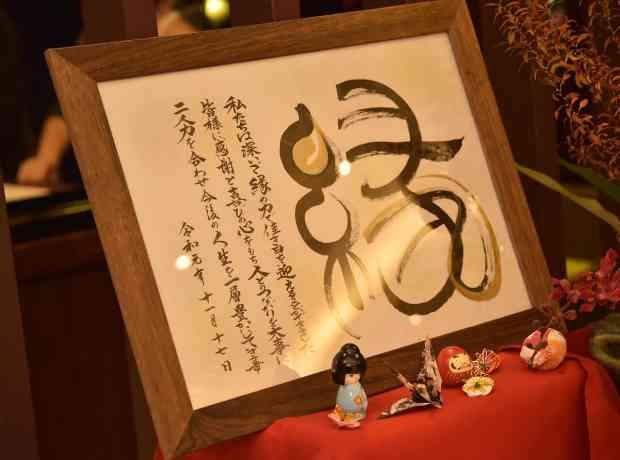 縁
私たちは深い縁の力で佳き日を迎えることができました
皆様に感謝と喜びの心をもち人とのつながりを大事に
二人力を合わせ今後の人生を一層豊かにして
令和元年十一月十七日